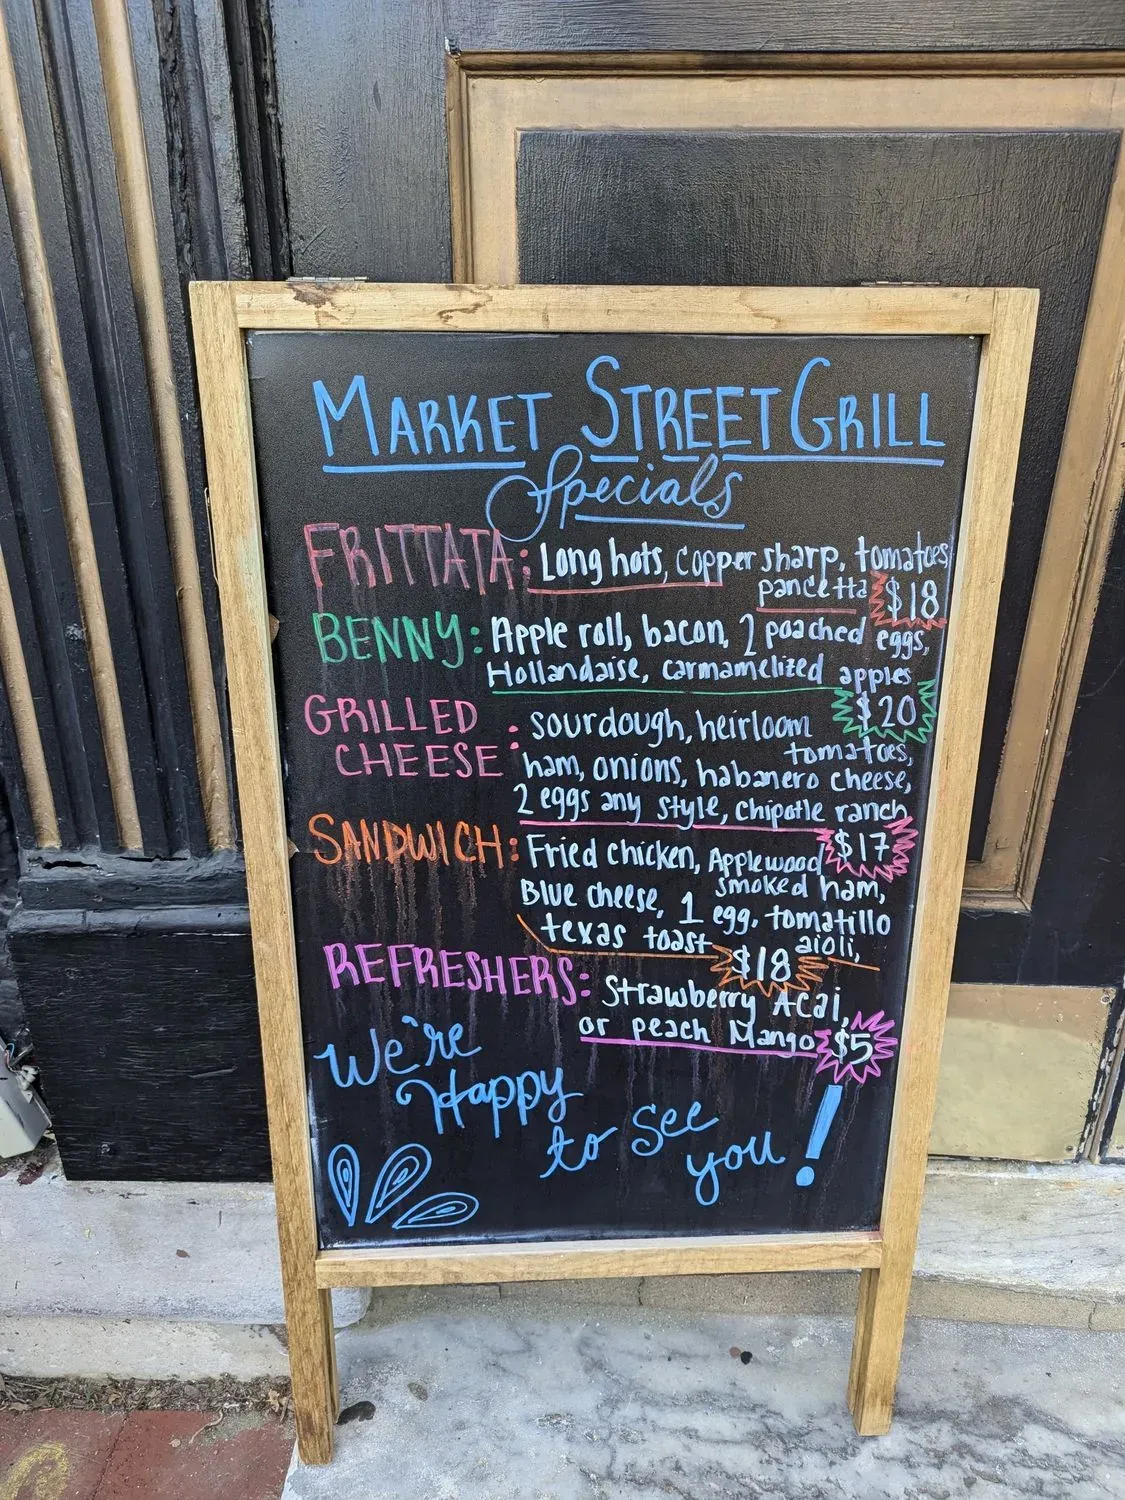 MARKET STREET GRILL
Specials
FRITTATA: Long hots, copper sharp, tomatoes,
pancetta $18
BENNY: Apple roll, bacon, 2 poached eggs,
Hollandaise, carmamelized apples
$20
GRILLED CHEESE: sourdough, heirloom
tomatoes,
ham, onions, habanero cheese,
2 eggs any style, chipotle ranch
$17
SANDWICH: Fried chicken, Applewood
smoked ham,
Blue cheese, 1 egg, tomatillo
aioli,
texas toast $18
REFRESHERS: Strawberry Acai,
or peach Mango $5
We're
Happy
to see
you!